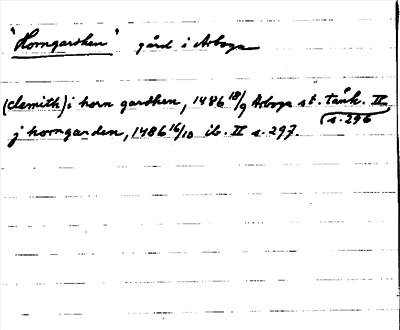 "Horngardhen" gård i Arboga
(clemith) i horn gardhen, 1486 18/9 Arboga st. tänk. II s. 296
j horngarden, 1486 16/10 ib. II s. 297.